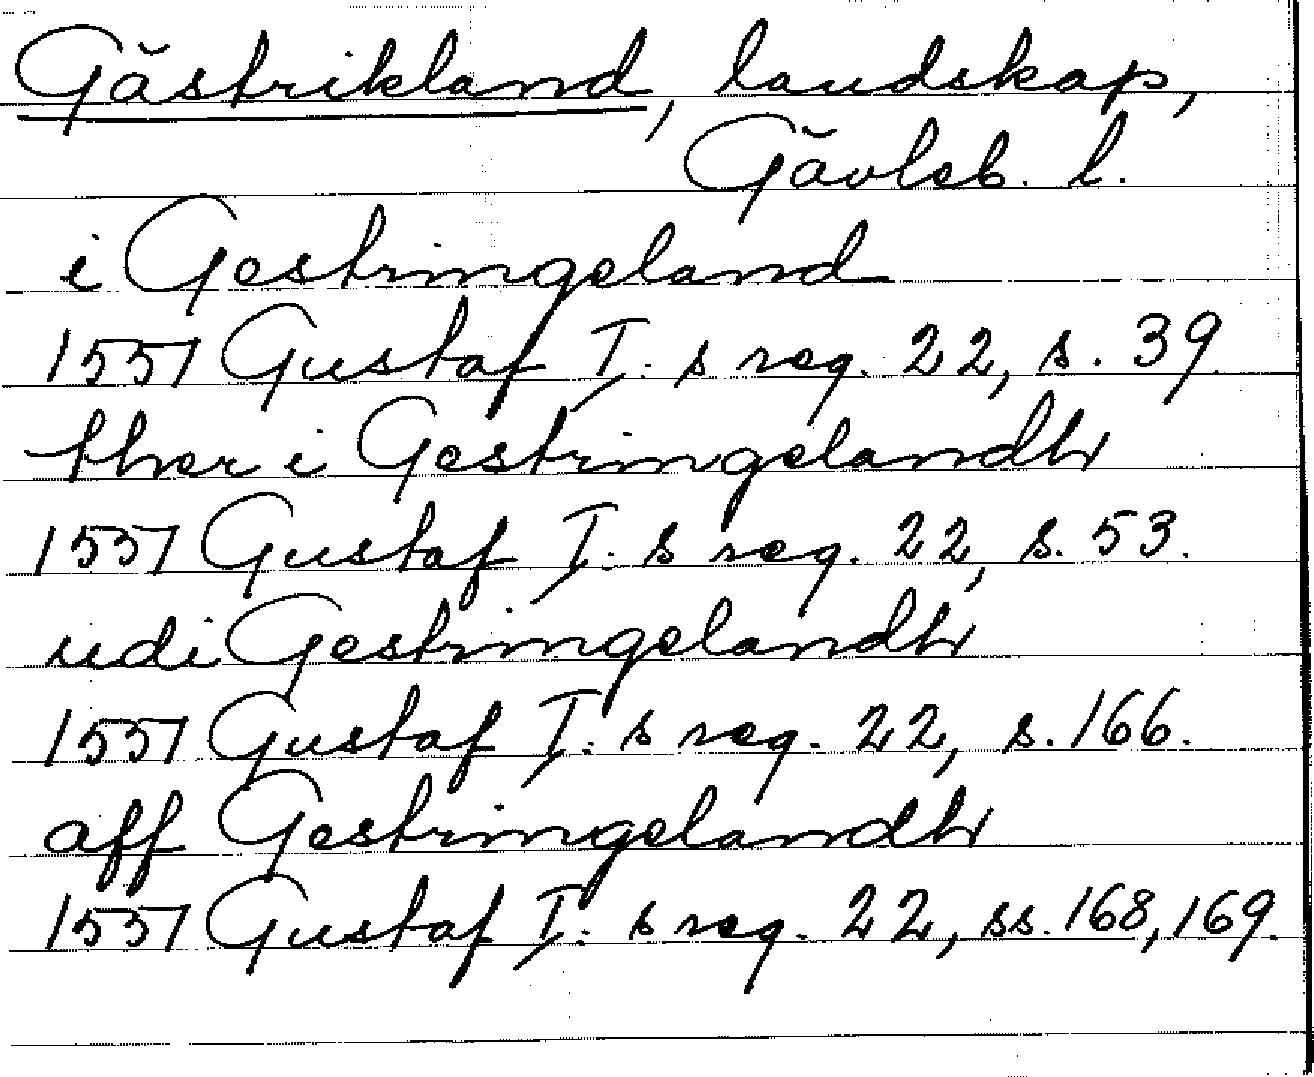 Gästrikland, landskap,
Gävleb. l.
i Gestringeland
1551 Gustaf I: s reg. 22, s. 39.
ther i Gestringelandh
1551 Gustaf I: s reg. 22, s. 53.
udi Gestringelandh
1551 Gustaf I: s reg. 22, s. 166.
aff Gestringelandh
1551 Gustaf I: s reg. 22, ss. 168, 169.